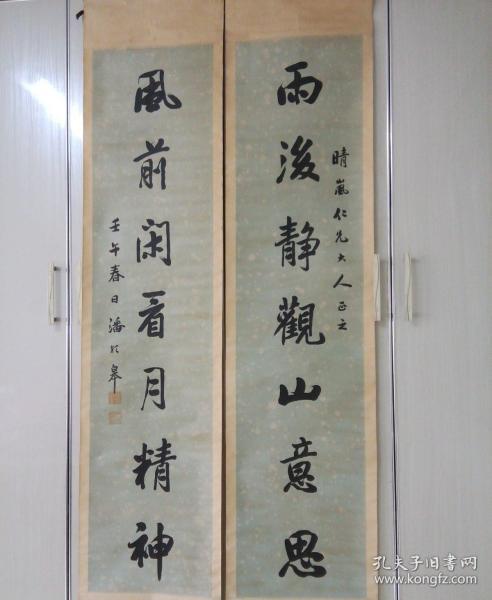 雨後静觀山意思
晴嵐仁兄大人正之
風前闲看月精神
壬午春日潘龄皋
孔夫子旧书网
www.kongfz.com